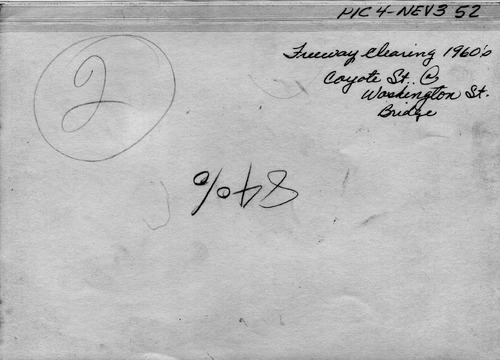 PIC 4-NEV3 52
Freeway Clearing 1960's
Coyote St. @
Washington St.
Bridge
2
84%